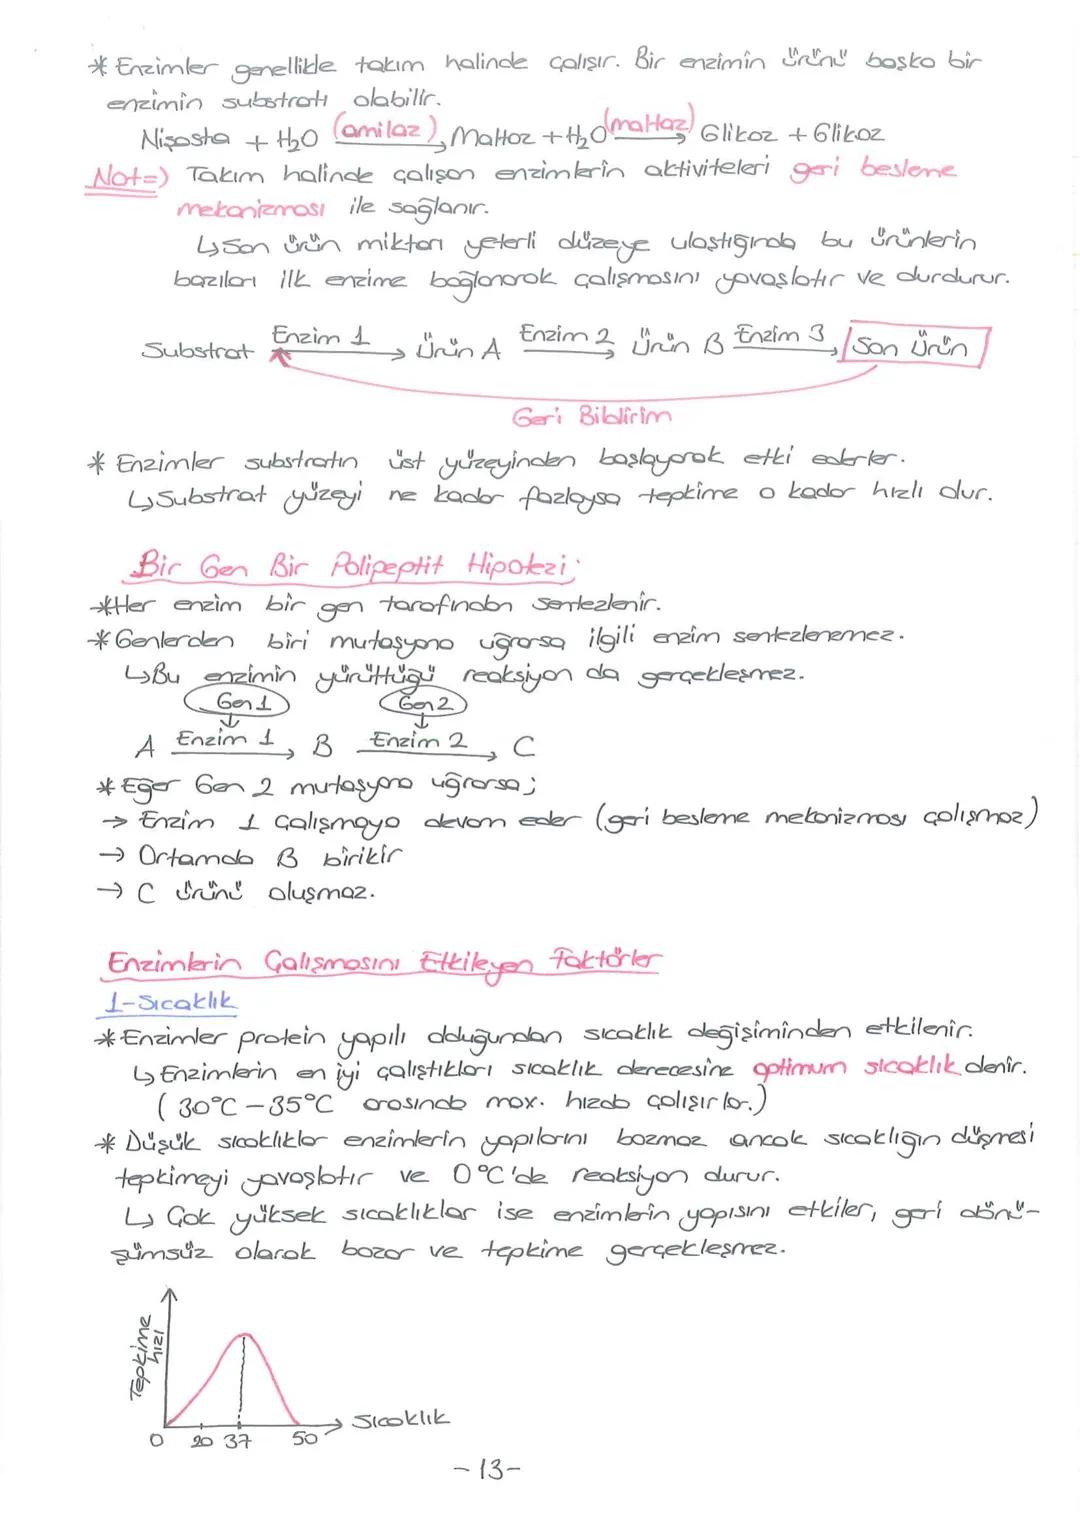 * Enzimler genellikle takım halinde çalışır. Bir enzimin ürünü başka bir
enzimin substratı olabilir.
Nişasta + H₂O (amilaz) → Maltoz + H₂O (maltaz) → Glikoz + Glikoz
Not=) Takım halinde çalışan enzimlerin aktiviteleri geri besleme
mekanizması ile sağlanır.
↳ Son ürün miktarı yeterli düzeye ulaştığında bu ürünlerin
bazıları ilk enzime bağlanarak çalışmasını yavaşlatır ve durdurur.
Substrat Enzim 1 → Ürün A Enzim 2 → Ürün B Enzim 3 → Son Ürün
Geri Bildirim
* Enzimler substratın üst yüzeyinden başlayarak etki ederler.
↳ Substrat yüzeyi ne kadar fazlaysa tepkime o kadar hızlı olur.
Bir Gen Bir Polipeptit Hipotezi:
* Her enzim bir gen tarafından sentezlenir.
* Genlerden biri mutasyona uğrarsa ilgili enzim sentezlenemez.
↳ Bu enzimin yürüttüğü reaksiyon da gerçekleşmez.
Gen 1 Gen 2
A Enzim 1 → B Enzim 2 → C
* Eğer Gen 2 mutasyona uğrarsa;
→ Enzim 1 çalışmaya devam eder (geri besleme mekanizması çalışmaz)
→ Ortamda B birikir
→ C ürünü oluşmaz.
Enzimlerin Çalışmasını Etkileyen Faktörler
1-Sıcaklık
* Enzimler protein yapılı olduğundan sıcaklık değişiminden etkilenir.
↳ Enzimlerin en iyi çalıştıkları sıcaklık derecesine optimum sıcaklık denir.
(30°C - 35°C arasında max. hızda çalışırlar.)
* Düşük sıcaklıklar enzimlerin yapılarını bozmaz ancak sıcaklığın düşmesi
tepkimeyi yavaşlatır ve 0°C'de reaksiyon durur.
↳ Çok yüksek sıcaklıklar ise enzimlerin yapısını etkiler, geri dönü-
şümsüz olarak bozar ve tepkime gerçekleşmez.
Tepkime
hızı
Sıcaklık
0 20 37 50
-13-